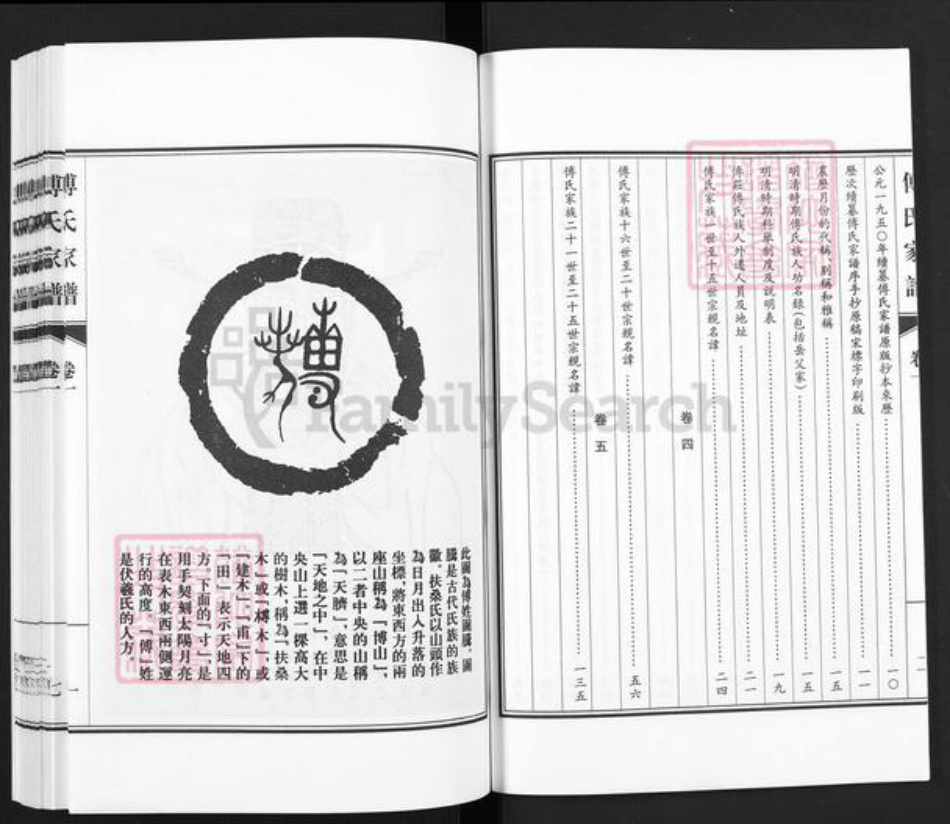 傅氏家譜
公元一九五〇年續纂傅氏家譜原版抄本來歷 一〇
歷次續纂傅氏家譜序手抄原稿宋標字印刷版 一一
農歷月份的代稱、別稱和雅稱 一五
明清時期傅氏族人功名錄（包括岳父家） 一五
明清時期科舉制度及説明表 一九
傅莊傅氏族人外遷人員及地址 二一
傅氏家族一世至十五世宗親名諱 二四
卷四
傅氏家族十六世至二十世宗親名諱 五六
卷五
傅氏家族二十一世至二十五世宗親名諱 一三五
FamilySearch
此圖為傅姓圖騰。圖
騰是古代氏族的族
徽。扶桑氏以山頭作
為日月出入升落的
坐標，將東西方的兩
座山稱為「博山」，
以二者中央的山稱
為「天臍」，意思是
「天地之中」，在中
央山上選一棵高大
的樹木，稱為「扶桑
木」或「榑木」，或
「建木」。「甫」下的
「田」表示天地四
方，下面的「寸」，是
用手契刻太陽月亮
在表木東西兩側運
行的高度。「傅」姓
是伏羲氏的人方。
傅氏家譜
卷一